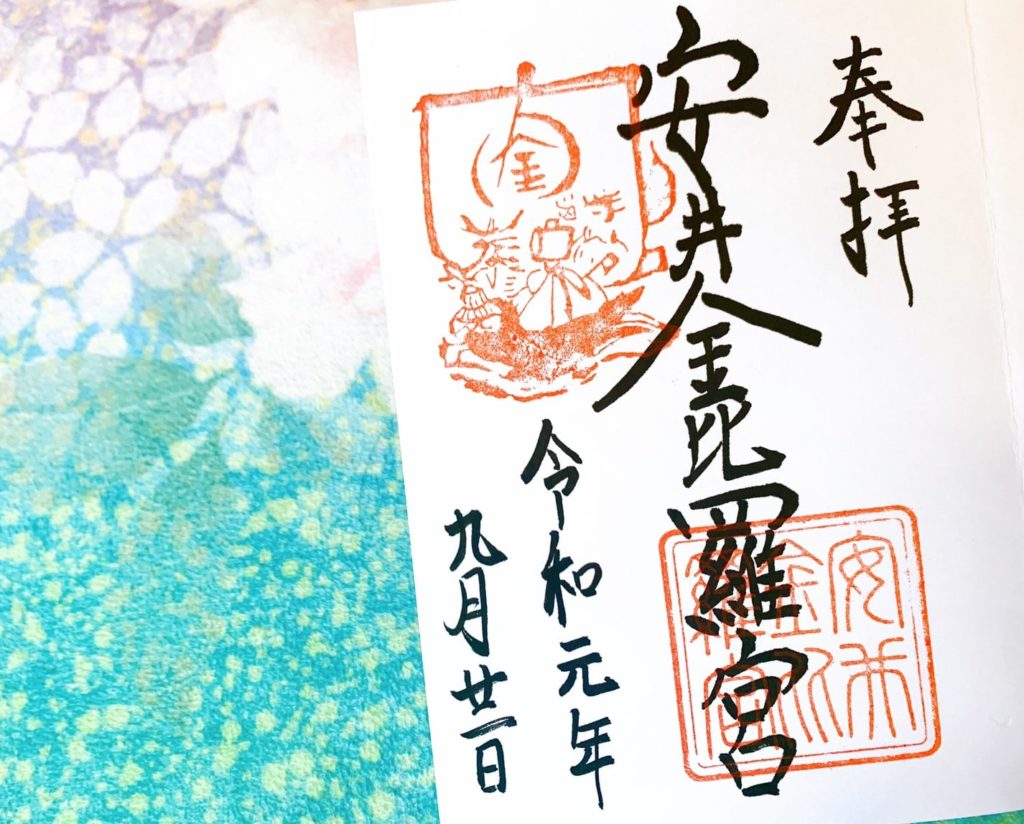 奉拝
安井金毘羅宮
令和元年
九月廿一日
金
安井
金比
羅宮